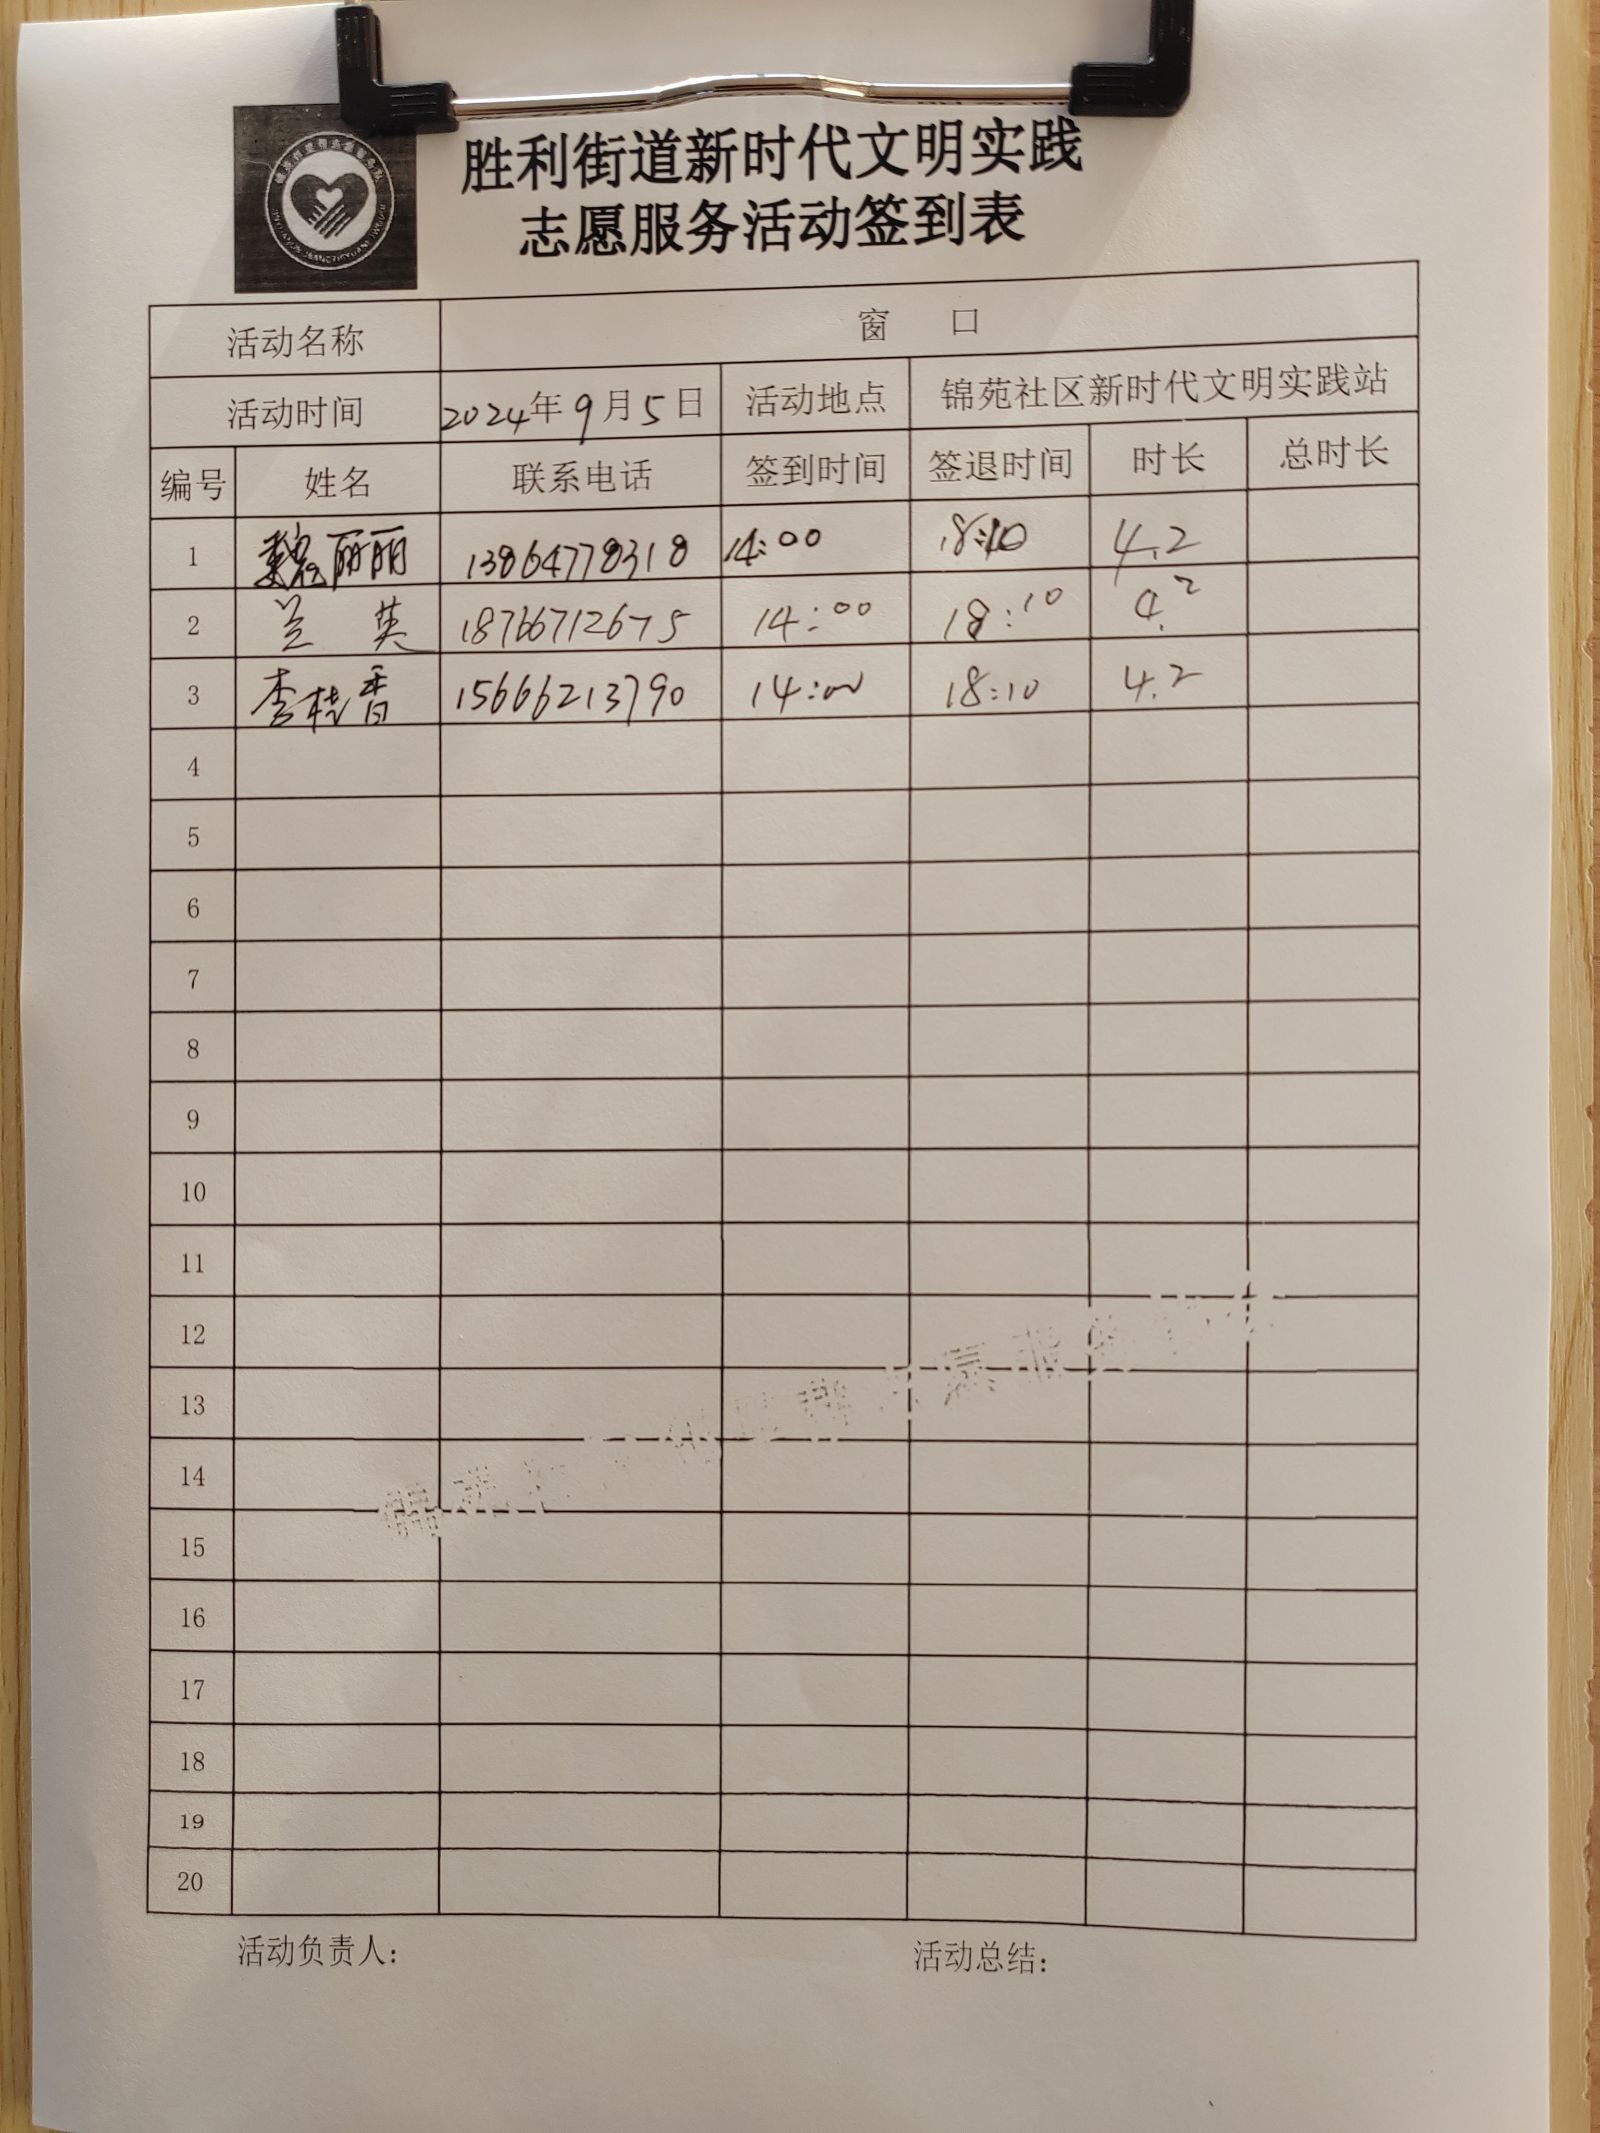 胜利街道新时代文明实践
志愿服务活动签到表
活动名称 窗 口
活动时间 2024年9月5日 活动地点 锦苑社区新时代文明实践站
编号 姓名 联系电话 签到时间 签退时间 时长 总时长
1 魏丽丽 13864778318 14:00 18:10 4.2
2 兰英 18766712675 14:00 18:10 4.2
3 李桂香 15666213790 14:00 18:10 4.2
4
5
6
7
8
9
10
11
12
13
14
15
16
17
18
19
20
活动负责人: 活动总结: